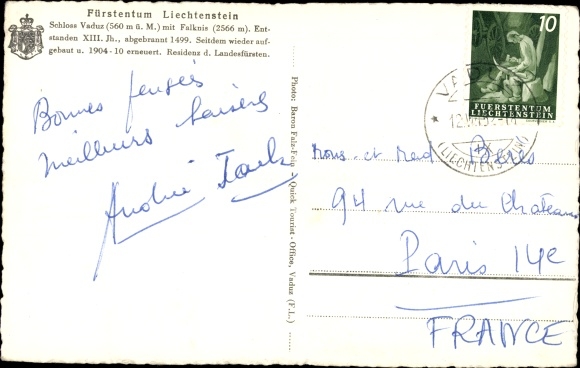 Fürstentum Liechtenstein
Schloss Vaduz (560 m ü. M.) mit Falknis (2566 m). Ent-
standen XIII. Jh., abgebrannt 1499. Seitdem wieder auf-
gebaut u. 1904-10 erneuert. Residenz d. Landesfürsten.
Bonnes pensées
Meilleurs baisers
André
Photo: Baron Falz-Fein - Quick Tourist-Office, Vaduz (F.L.)
10
FUERSTENTUM
LIECHTENSTEIN
VADUZ
(LIECHTENSTEIN)
et Mad
94 rue du Château
Paris 14e
FRANCE